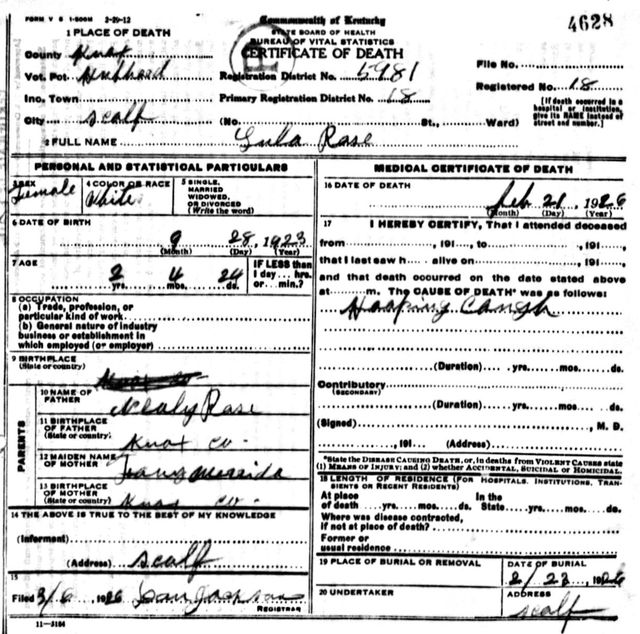 FORM V S 1-500M 2-29-12
Commonwealth of Kentucky
4628
STATE BOARD OF HEALTH
BUREAU OF VITAL STATISTICS
CERTIFICATE OF DEATH
1 PLACE OF DEATH
County Knox
Vot. Pct.
Registration District No. 5981
File No.
Inc. Town
Primary Registration District No. 18
Registered No. 18
City Scalf
(No. St., Ward)
[If death occurred in a hospital or institution, give its NAME instead of street and number.]
2 FULL NAME Lula Rase
PERSONAL AND STATISTICAL PARTICULARS
3 SEX Female
4 COLOR OR RACE White
5 SINGLE, MARRIED WIDOWED, OR DIVORCED (Write the word)
6 DATE OF BIRTH
9 28, 1923
(Month) (Day) (Year)
7 AGE
2 yrs. 4 mos. 24 ds.
IF LESS than 1 day... hrs. or... min.?
8 OCCUPATION
(a) Trade, profession, or particular kind of work
(b) General nature of industry business or establishment in which employed (or employer)
9 BIRTHPLACE
(State or country)
Knox Co
PARENTS
10 NAME OF FATHER Nealy Rase
11 BIRTHPLACE OF FATHER (State or country) Knox Co
12 MAIDEN NAME OF MOTHER
13 BIRTHPLACE OF MOTHER (State or country) Knox Co
14 THE ABOVE IS TRUE TO THE BEST OF MY KNOWLEDGE
(Informant)
(Address) Scalf
15
Filed 3/6 1926 Jackson
REGISTRAR
11-3184
MEDICAL CERTIFICATE OF DEATH
16 DATE OF DEATH
Feb 21, 1926
(Month) (Day) (Year)
17 I HEREBY CERTIFY, That I attended deceased
from , 191 , to , 191 ,
that I last saw h alive on , 191 ,
and that death occurred on the date stated above
at m. The CAUSE OF DEATH* was as follows:
Hooping Cough
(Duration) yrs. mos. ds.
Contributory
(SECONDARY)
(Duration) yrs. mos. ds.
(Signed) , M. D.
, 191 (Address)
*State the DISEASE CAUSING DEATH, or, in deaths from VIOLENT CAUSES state (1) MEANS OF INJURY; and (2) whether ACCIDENTAL, SUICIDAL or HOMICIDAL.
18 LENGTH OF RESIDENCE (FOR HOSPITALS, INSTITUTIONS, TRANSIENTS OR RECENT RESIDENTS)
At place of death yrs. mos. ds. In the State yrs. mos. ds.
Where was disease contracted, if not at place of death?
Former or usual residence
19 PLACE OF BURIAL OR REMOVAL
DATE OF BURIAL
2/23, 1926
20 UNDERTAKER
ADDRESS
Scalf